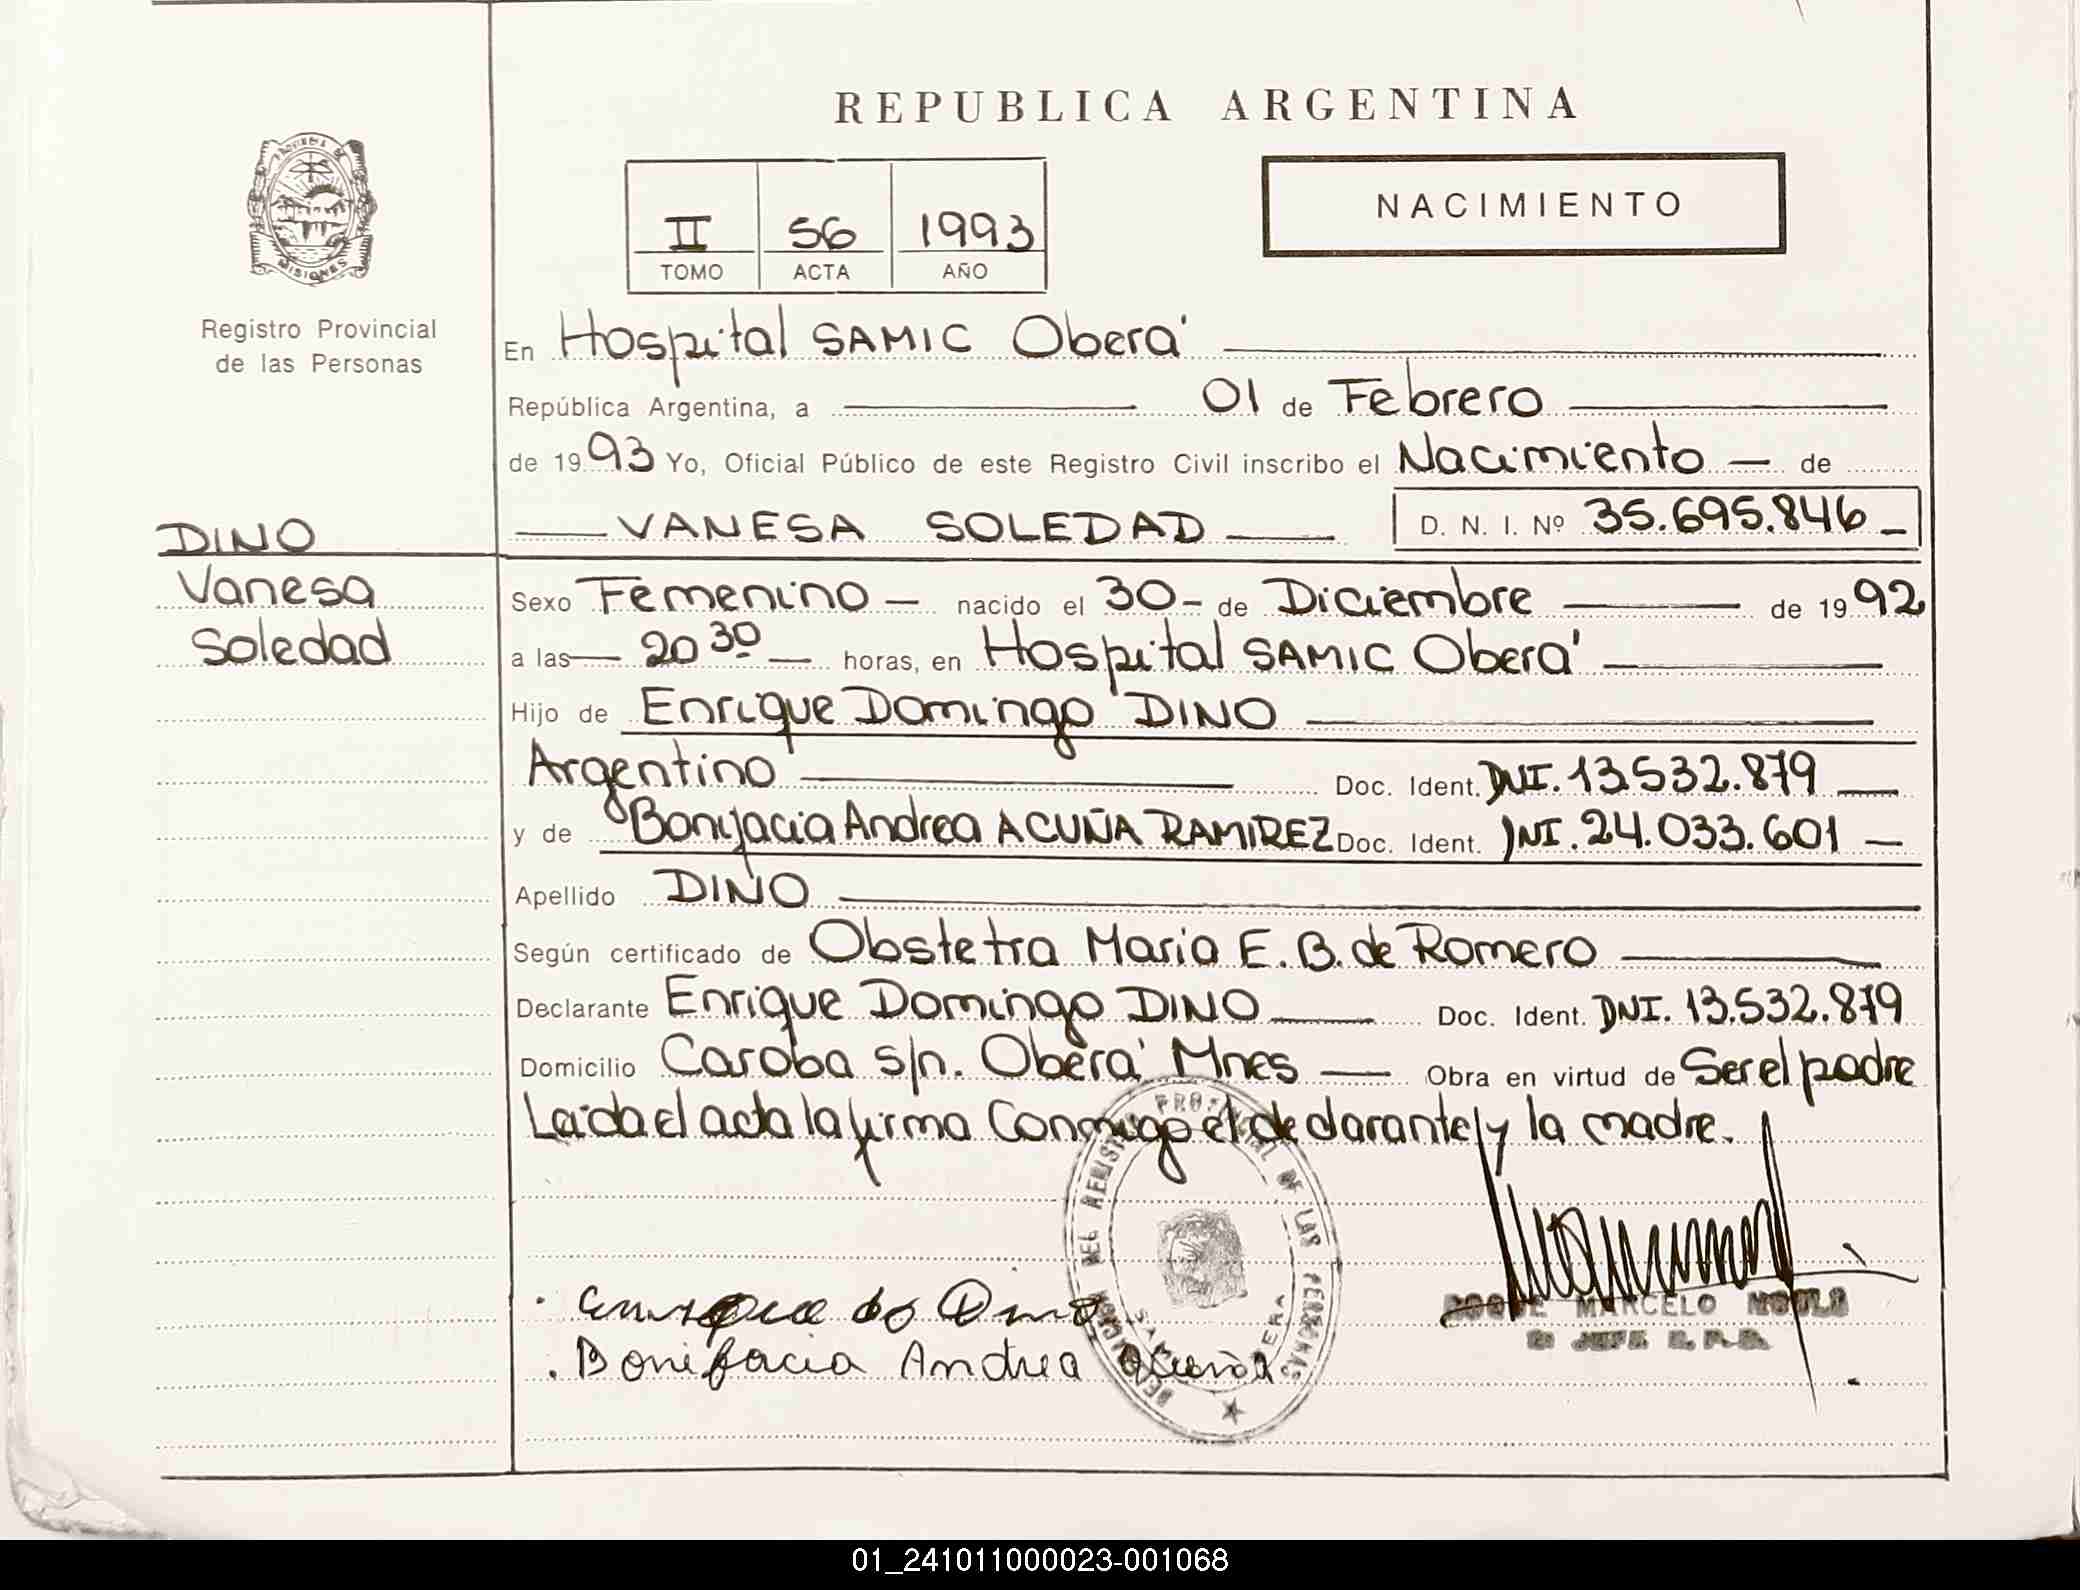 REPUBLICA ARGENTINA
PROVINCIA DE
MISIONES
Registro Provincial
de las Personas
II 56 1993
TOMO ACTA AÑO
NACIMIENTO
En Hospital SAMIC Oberá
República Argentina, a 01 de Febrero
de 1993 Yo, Oficial Público de este Registro Civil inscribo el Nacimiento — de
DINO
Vanesa
Soledad
VANESA SOLEDAD D. N. I. Nº 35.695.846
Sexo Femenino — nacido el 30 - de Diciembre de 1992
a las 20 30 horas, en Hospital SAMIC Oberá
Hijo de Enrique Domingo DINO
Argentino Doc. Ident. DNI. 13.532.879
y de Bonifacia Andrea ACUÑA RAMIREZ Doc. Ident. DNI. 24.033.601
Apellido DINO
Según certificado de Obstetra Maria E. B. de Romero
Declarante Enrique Domingo DINO Doc. Ident. DNI. 13.532.879
Domicilio Caroba s/n. Oberá Mnes Obra en virtud de Ser el padre
Leída el acta la firma Conmigo el declarante y la madre.
DEL REGISTRO PROVINCIAL DE LAS PERSONAS
Dino
Bonifacia Andrea Acuña
MARCELO
JEFE
01_241011000023-001068